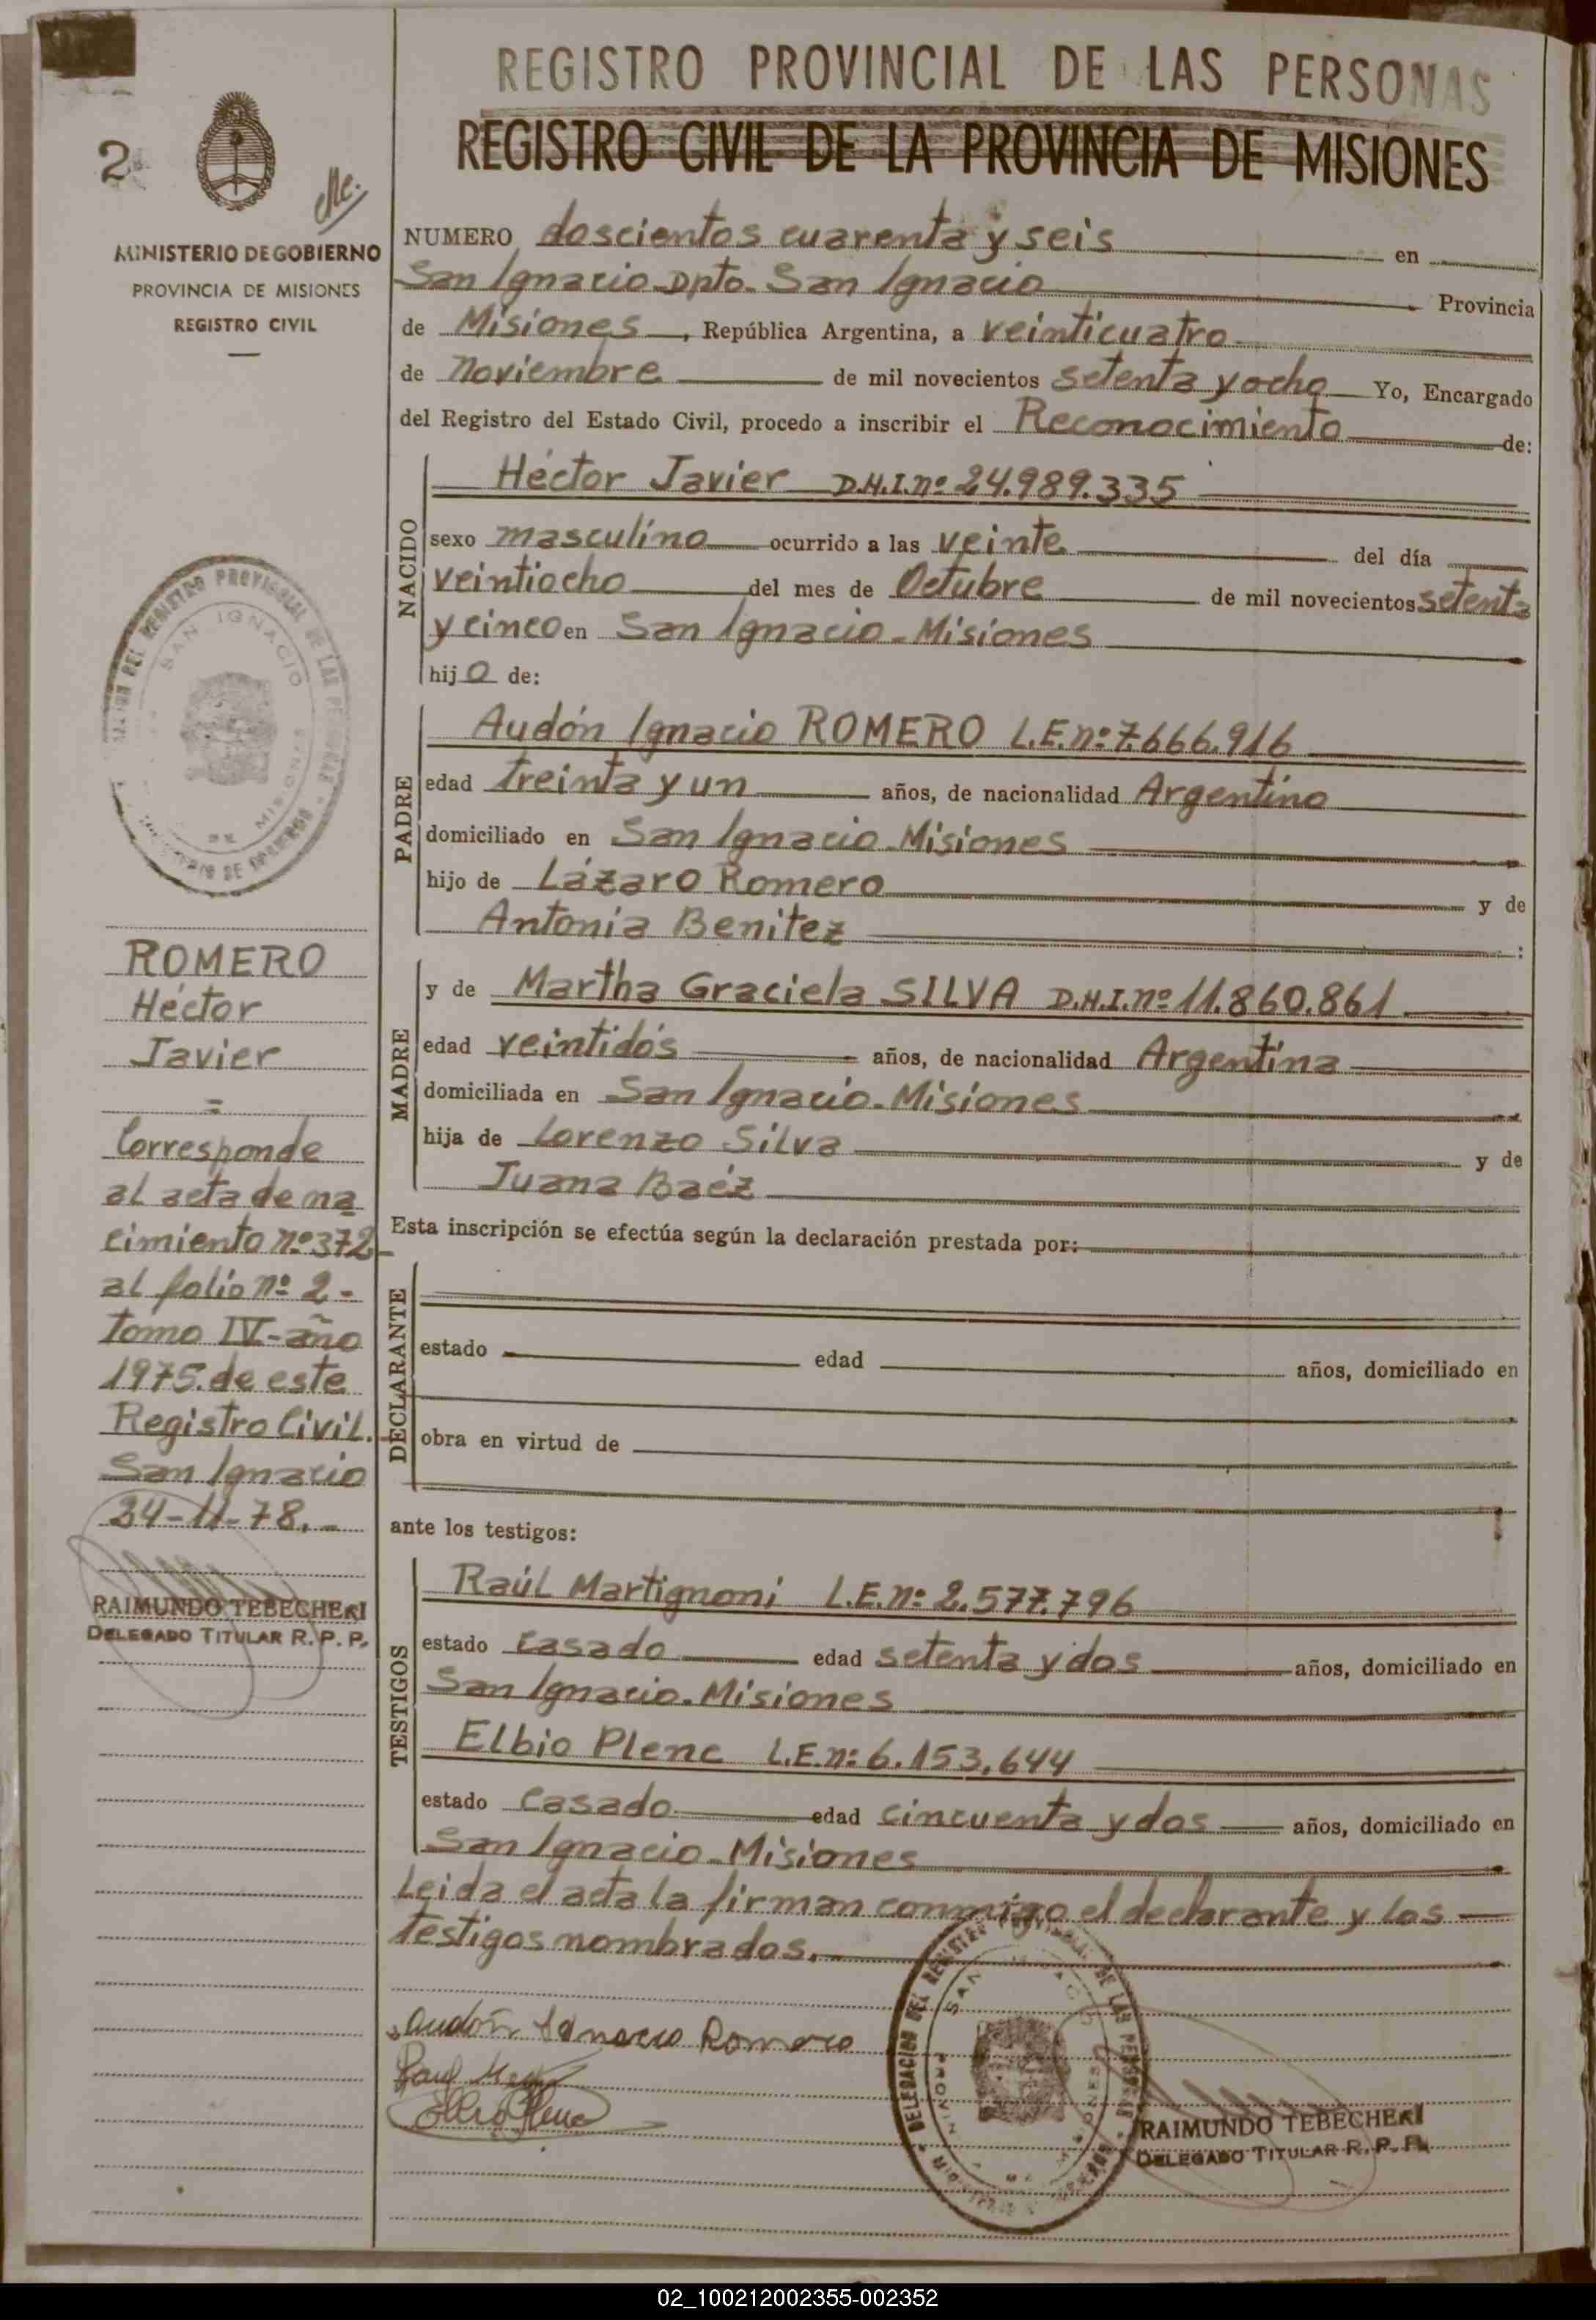 REGISTRO PROVINCIAL DE LAS PERSONAS
REGISTRO CIVIL DE LA PROVINCIA DE MISIONES
2
MINISTERIO DE GOBIERNO
PROVINCIA DE MISIONES
REGISTRO CIVIL
NUMERO doscientos cuarenta y seis en
San Ignacio Dpto. San Ignacio Provincia
de Misiones, República Argentina, a veinticuatro
de noviembre de mil novecientos setenta y ocho Yo, Encargado
del Registro del Estado Civil, procedo a inscribir el Reconocimiento de:
NACIDO
Héctor Javier D.N.I. nº 24.989.335
sexo masculino ocurrido a las veinte del día
veintiocho del mes de Octubre de mil novecientos setenta
y cinco en San Ignacio - Misiones
hijo de:
PADRE
Audón Ignacio ROMERO L.E. nº 7.666.916
edad treinta y un años, de nacionalidad Argentino
domiciliado en San Ignacio - Misiones
hijo de Lázaro Romero y de
Antonia Benitez :
MADRE
y de Martha Graciela SILVA D.N.I. nº 11.860.861
edad veintidós años, de nacionalidad Argentina
domiciliada en San Ignacio - Misiones
hija de Lorenzo Silva y de
Juana Baéz
Esta inscripción se efectúa según la declaración prestada por:
DECLARANTE
estado edad años, domiciliado en
obra en virtud de
ante los testigos:
TESTIGOS
Raúl Martignoni L.E. nº 2.577.796
estado casado edad setenta y dos años, domiciliado en
San Ignacio - Misiones
Elbio Plenc L.E. nº 6.153.644
estado casado edad cincuenta y dos años, domiciliado en
San Ignacio - Misiones
Leida el acta la firman conmigo el declarante y los
testigos nombrados.
Audón Ignacio Romero
Raul
Elbio Plenc
DELEGACION DEL REGISTRO PROVINCIAL DE LAS PERSONAS
SAN IGNACIO
PROVINCIA DE MISIONES
RAIMUNDO TEBECHERI
DELEGADO TITULAR R. P. P.
ROMERO
Héctor
Javier
=
Corresponde
al acta de na
cimiento nº 372
al folio nº 2 -
tomo IV - año
1975. de este
Registro Civil.
San Ignacio
24-11-78.-
RAIMUNDO TEBECHERI
DELEGADO TITULAR R. P. P.
02_100212002355-002352